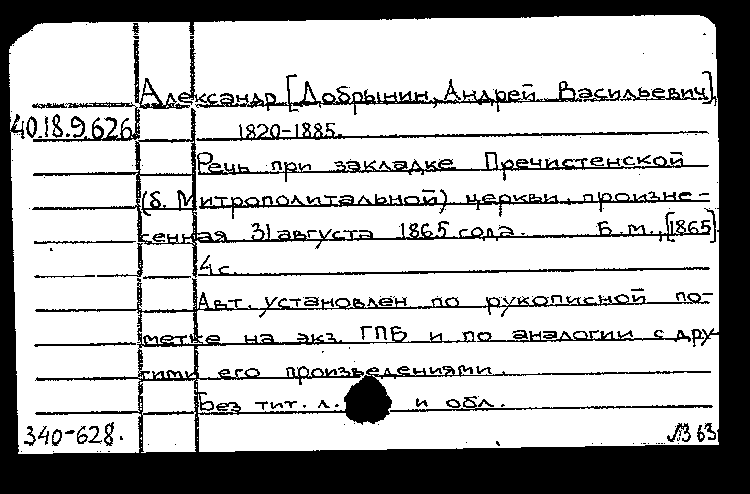 Александр [Добрынин, Андрей Васильевич],
40.18.9.626. 1820-1885.
Речь при закладке Пречистенской
(б. Митрополитальной) церкви, произне-
сенная 31 августа 1865 года. Б.м., [1865]
4 с.
Авт. установлен по рукописной по-
метке на экз. ГПБ и по аналогии с дру-
гими его произведениями.
Без тит. л. и обл.
340-628. ЛЗ 63